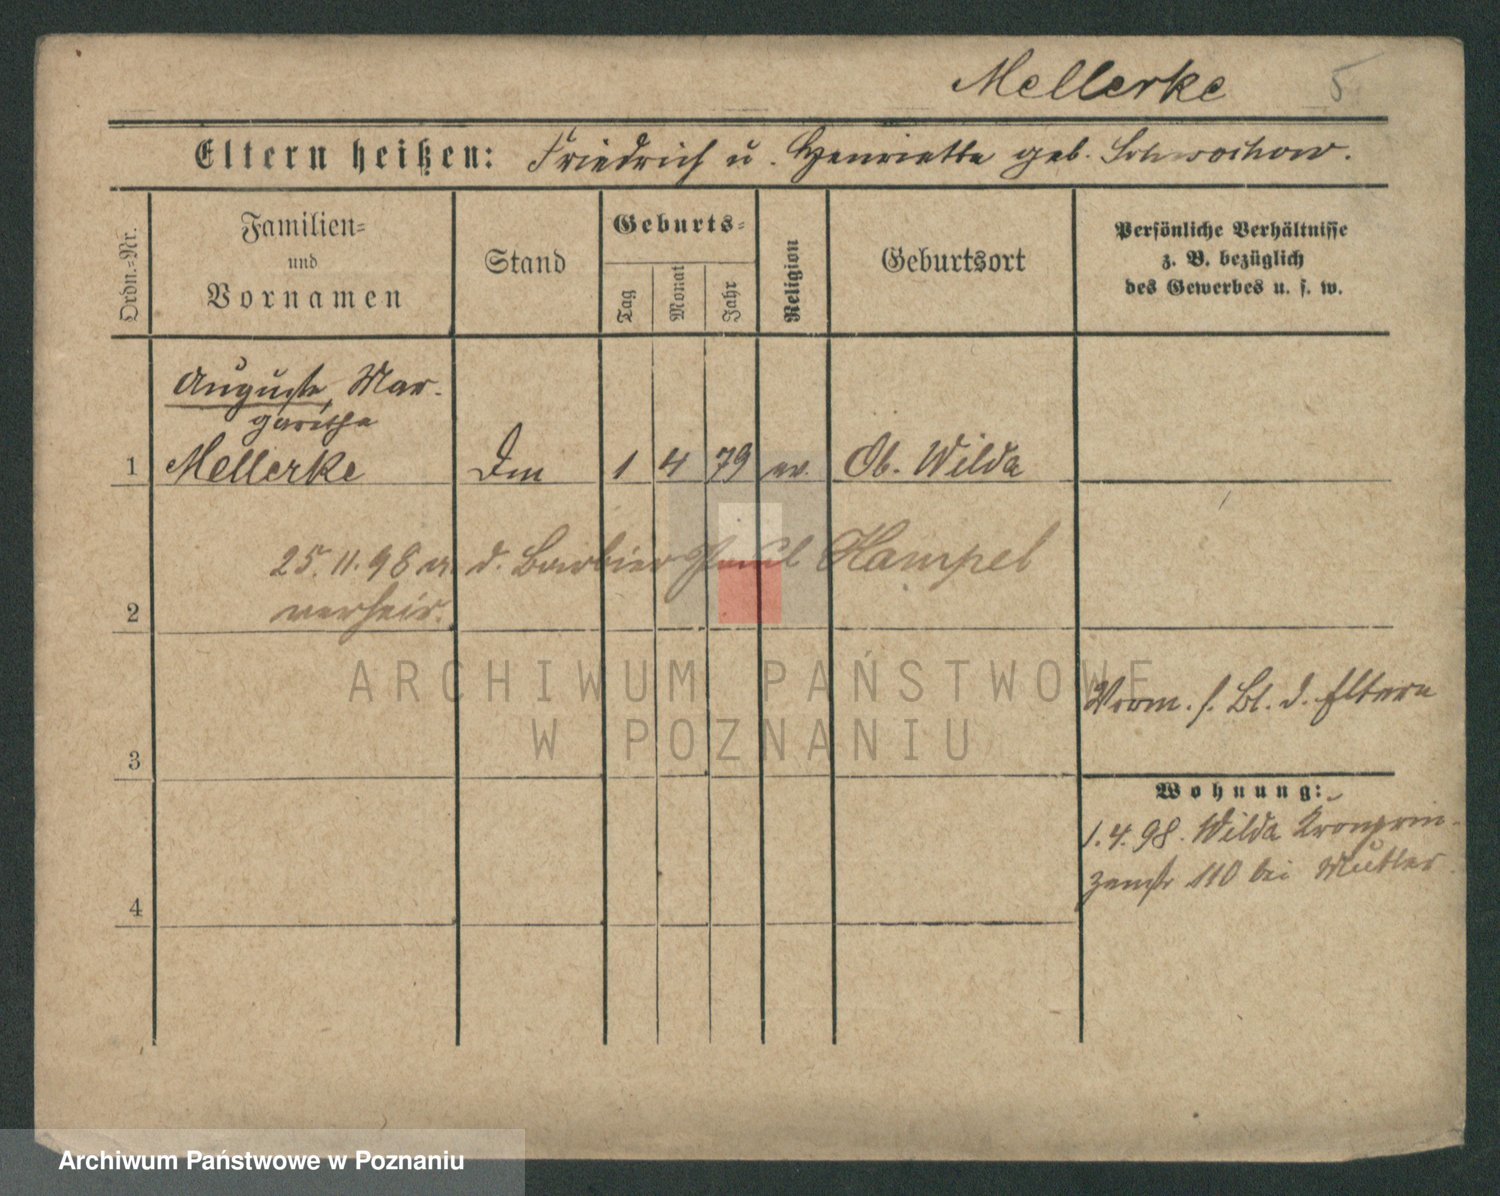 Mellerke 5
Eltern heißen: Friedrich u. Henriette geb. Schwochow.
Ordn.=Nr.
Familien=
und
Vornamen
Stand
Geburts=
Tag
Monat
Jahr
Religion
Geburtsort
Persönliche Verhältnisse
z. B. bezüglich
des Gewerbes u. s. w.
Auguste, Mar-
garethe
1 Mellerke 1 4 79 ev. Ob. Wilda
25.11.98 m. d. Barbier Paul Hampel
2 verheir.
ARCHIWUM PAŃSTWOWE
W POZNANIU
Vrom. s. Bl. d. Eltern
3
Wohnung:
1.4.98. Wilda Kronprin-
zenstr 110 bei Mutter
4
Archiwum Państwowe w Poznaniu